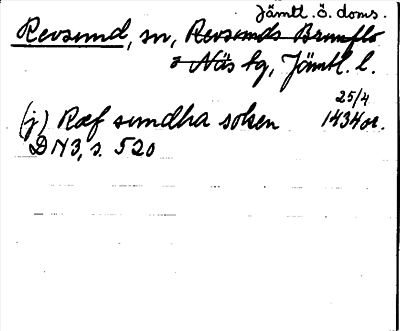 Jämtl. ö. doms.
Revsund, sn, Revsunds Brunflo
o Näs tg, Jämtl. l.
25/4
(j) Ræf sundha sokn 1434 or.
DN 3, s. 520